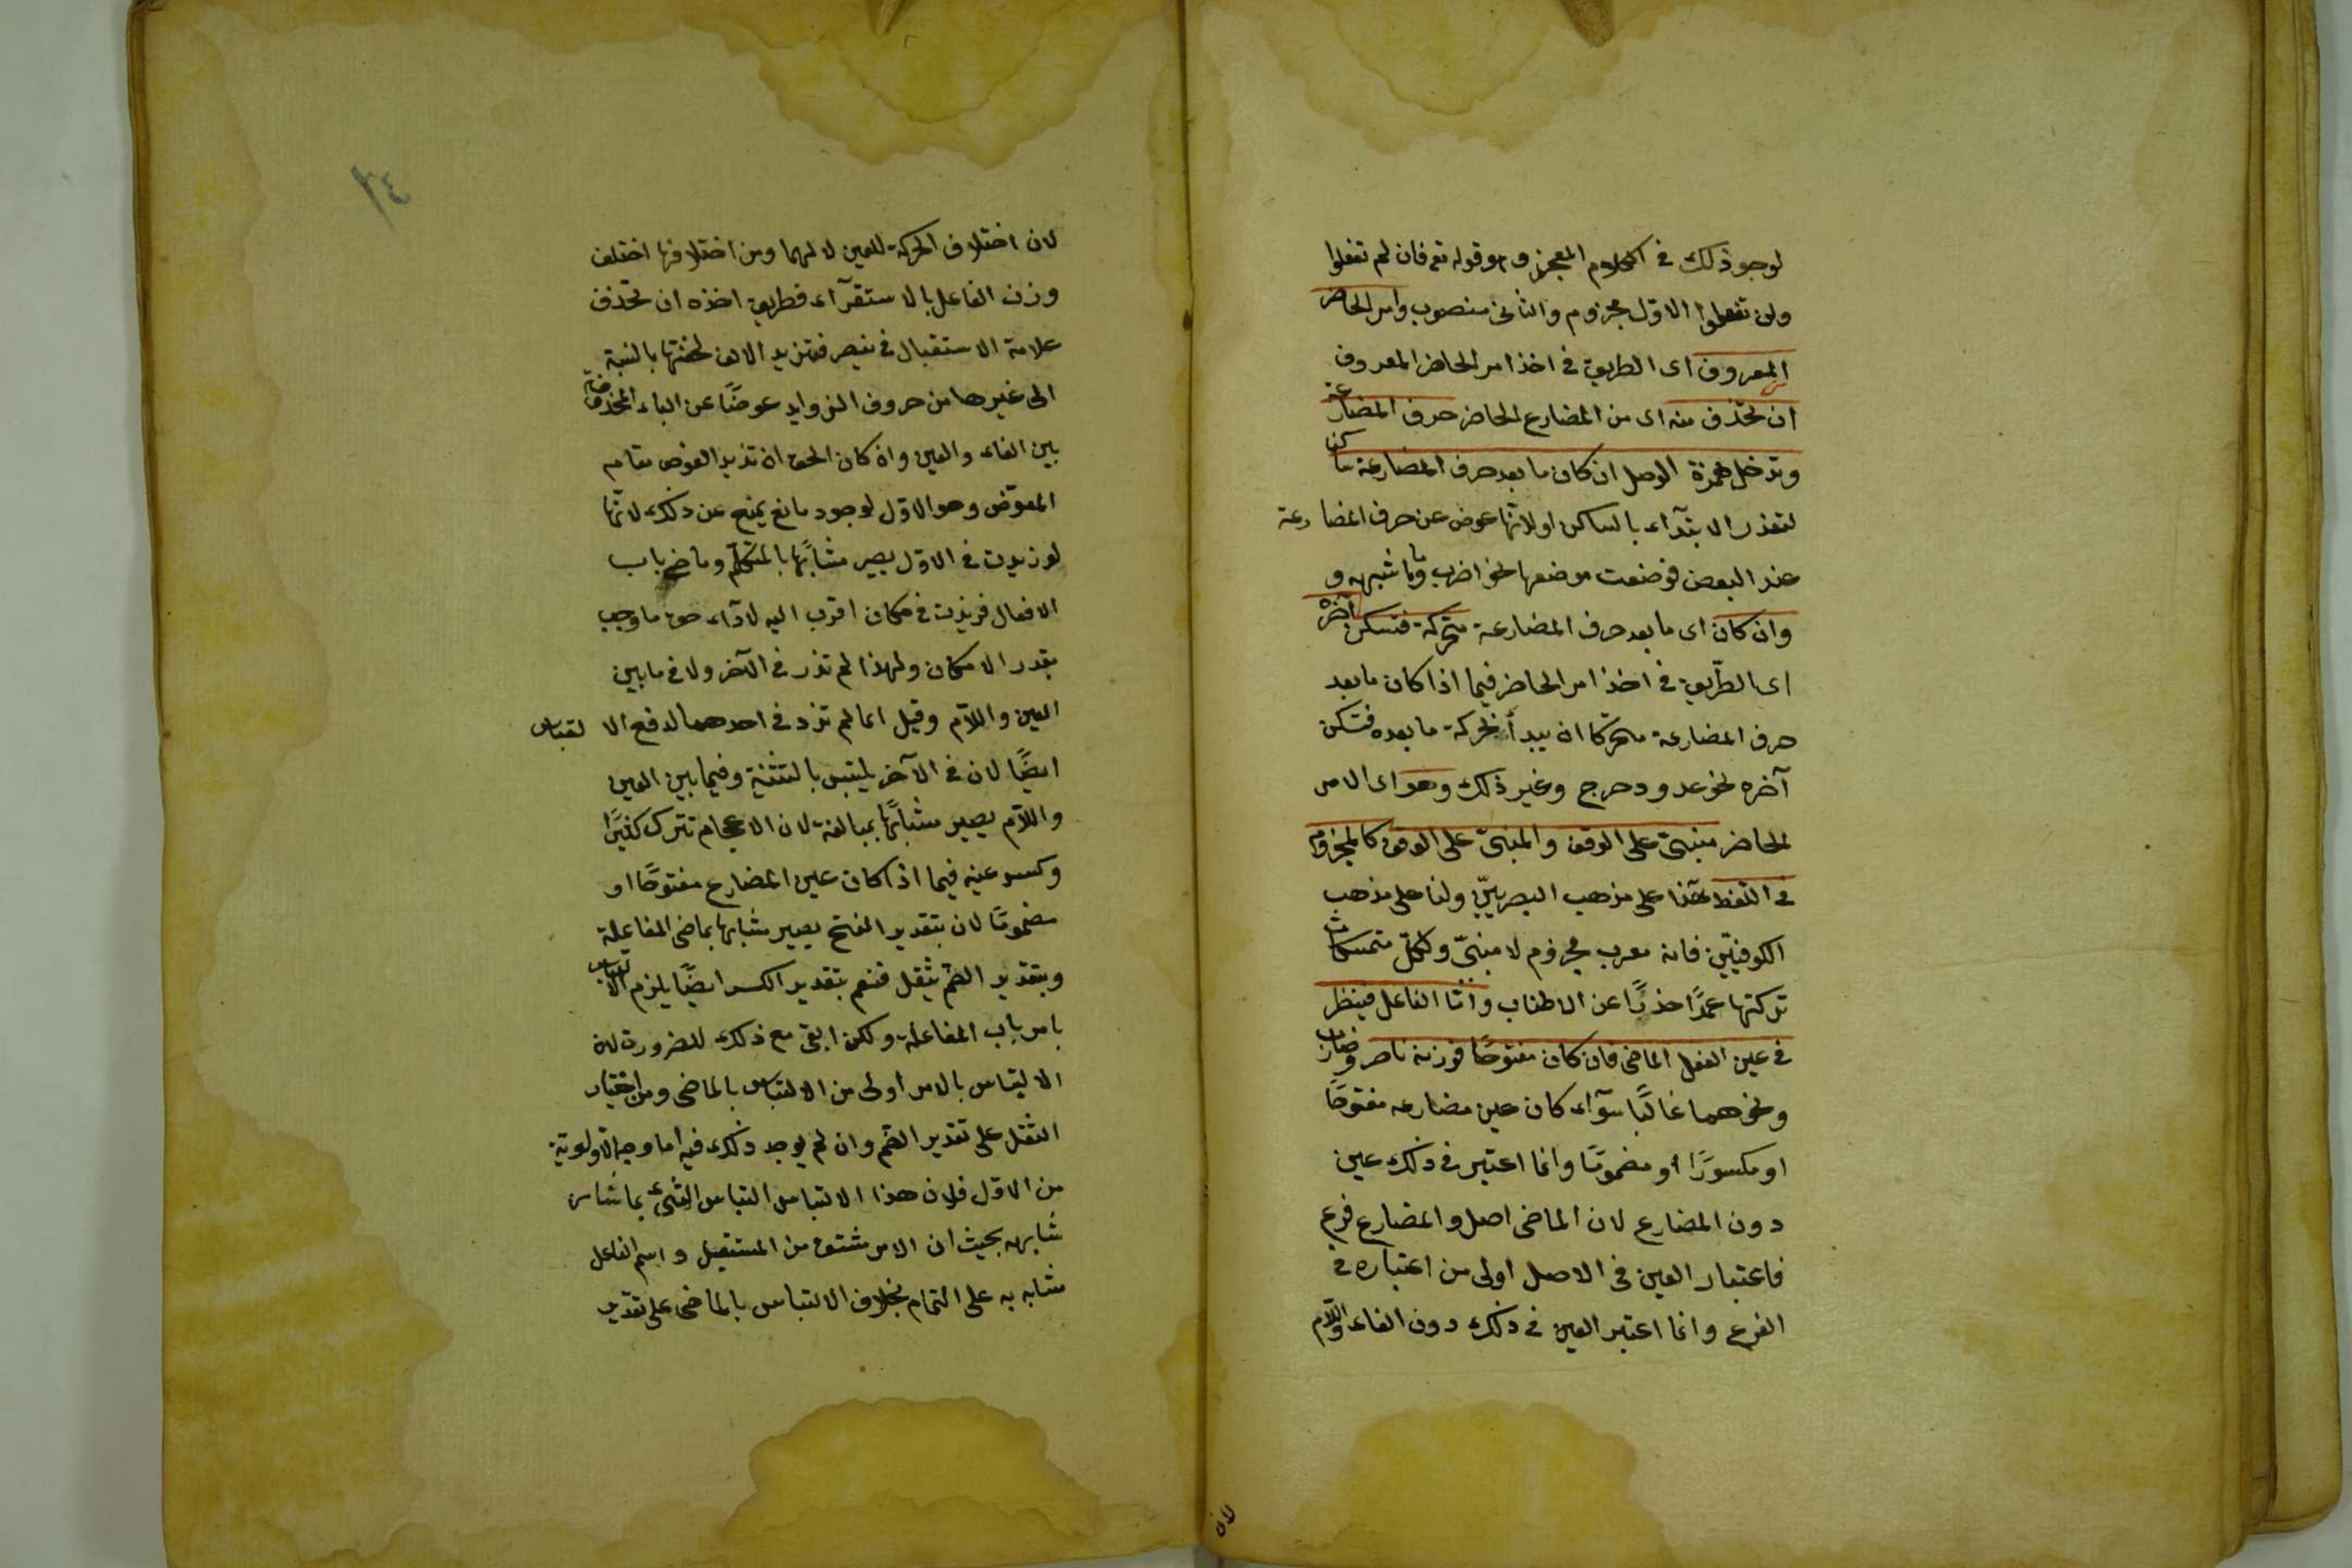 لوجود ذلك فى الكلام المعجز وهو قوله تع فان لم تفعلوا
ولن تفعلوا الاول مجزوم والثانى منصوب وامر الحاضر
المعروف اى الطريق فى اخذ امر الحاضر المعروف
ان تحذف منه اى من المضارع الحاضر حرف المضارعة
وتدخل همزة الوصل ان كان ما بعد حرف المضارعة ساكن
لتعذر الابتدآء بالساكن اولانها عوض عن حرف المضارعة
عند البعض فوضعت موضعها نحو اضرب وما شبهه و
وان كان اى ما بعد حرف المضارعة متحركة فتسكن آخره
اى الطريق فى اخذ امر الحاضر فيما اذا كان ما بعد
حرف المضارعة متحركا ان يبدأ بحركة ما بعده فتسكن
آخره نحو عد ودحرج وغير ذلك وهو اى الامر
الحاضر مبنىّ على الوقف والمبنىّ على الوقف كالمجزوم
فى اللفظ هذا على مذهب البصريّين ولنا على مذهب
الكوفيّين فانه معرب مجزوم لا مبنىّ ولكلّ متمسكات
تركتها عمدًا حذرًا عن الاطناب وامّا الفاعل فينظر
فى عين الفعل الماضى فان كان مفتوحًا فوزنه ناصر وضارب
ونحوهما غالبًا سوآء كان عين مضارعه مفتوحًا
او مكسورًا او مضمومًا وانما اعتبر فى ذلك عين
دون المضارع لان الماضى اصل والمضارع فرع
فاعتبار العين فى الاصل اولى من اعتباره فى
الفرع وانما اعتبر العين فى ذلك دون الفاء واللّام
لان
٢٤
لان اختلاف الحركة للعين لا لهما ومن اختلافها اختلف
وزن الفاعل بالاستقرآء فطريق اخذه ان تحذف
علامة الاستقبال فى ينصر فتزيد الالف لخفتها بالنسبة
الى غيرها من حروف الزوايد عوضًا عن الياء المحذوفة
بين الفاء والعين وان كان الحق ان تزيد العوض مقام
المعوّض وهو الاوّل لوجود مانع يمنع عن ذلك لانّها
لو زيدت فى الاوّل يصير مشابهًا بالمتكلّم وماضى باب
الافعال فزيدت فى مكان اقرب اليه لادآء حق ما وجب
بقدر الامكان ولهذا لم تزد فى الآخر ولا فى ما بين
العين واللّام وقيل انما لم تزد فى احدهما لدفع الالتباس
ايضًا لان فى الآخر يلتبس بالتثنية وفيما بين العين
واللّام يصير مشابهًا بمبالغة لان الاعجام تترك كثيرًا
وكسر عينه فيما اذا كان عين المضارع مفتوحًا او
مضمومًا لان بتقدير الفتح يصير مشابها بماضى المفاعلة
وبتقدير الضمّ يثقل فنعم بتقدير الكسر ايضًا يلزم الالتباس
بامر باب المفاعلة ولكن ابقى مع ذلك للضرورة لان
الالتباس بالامر اولى من الالتباس بالماضى ومن اختيار
الثقل على تقدير الضمّ وان لم يوجد ذلك فيه اما وجه الاولوية
من الاوّل فلان هذا الالتباس التباس الشىء بما
شابهه بحيث ان الامر مشتق من المستقبل واسم الفاعل
مشابه به على التمام بخلاف الالتباس بالماضى على تقدير